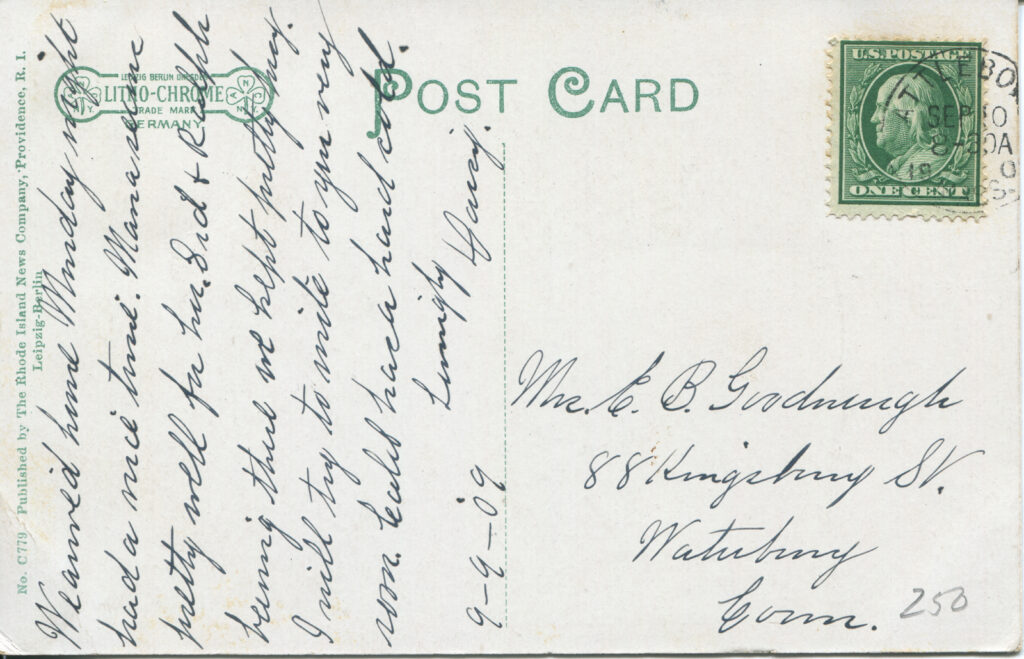 No. C779 Published by The Rhode Island News Company, Providence, R. I.
Leipzig-Berlin
LEIPZIG BERLIN DRESDEN
LITHO-CHROME
TRADE MARK
GERMANY
N.Y.
POST CARD
U.S. POSTAGE
ONE CENT
ATTLEBO
SEP 10
8-30A
We arrived home Monday night
had a nice time. Mama seems
pretty well for her. Sid & Ralph
being there we kept pretty busy.
I will try to write to you very
soon. Each have hard cold.
Daisy.
9-9-09
Mrs. E. B. Goodnough
88 Kingsbury St.
Waterbury
Conn.
250